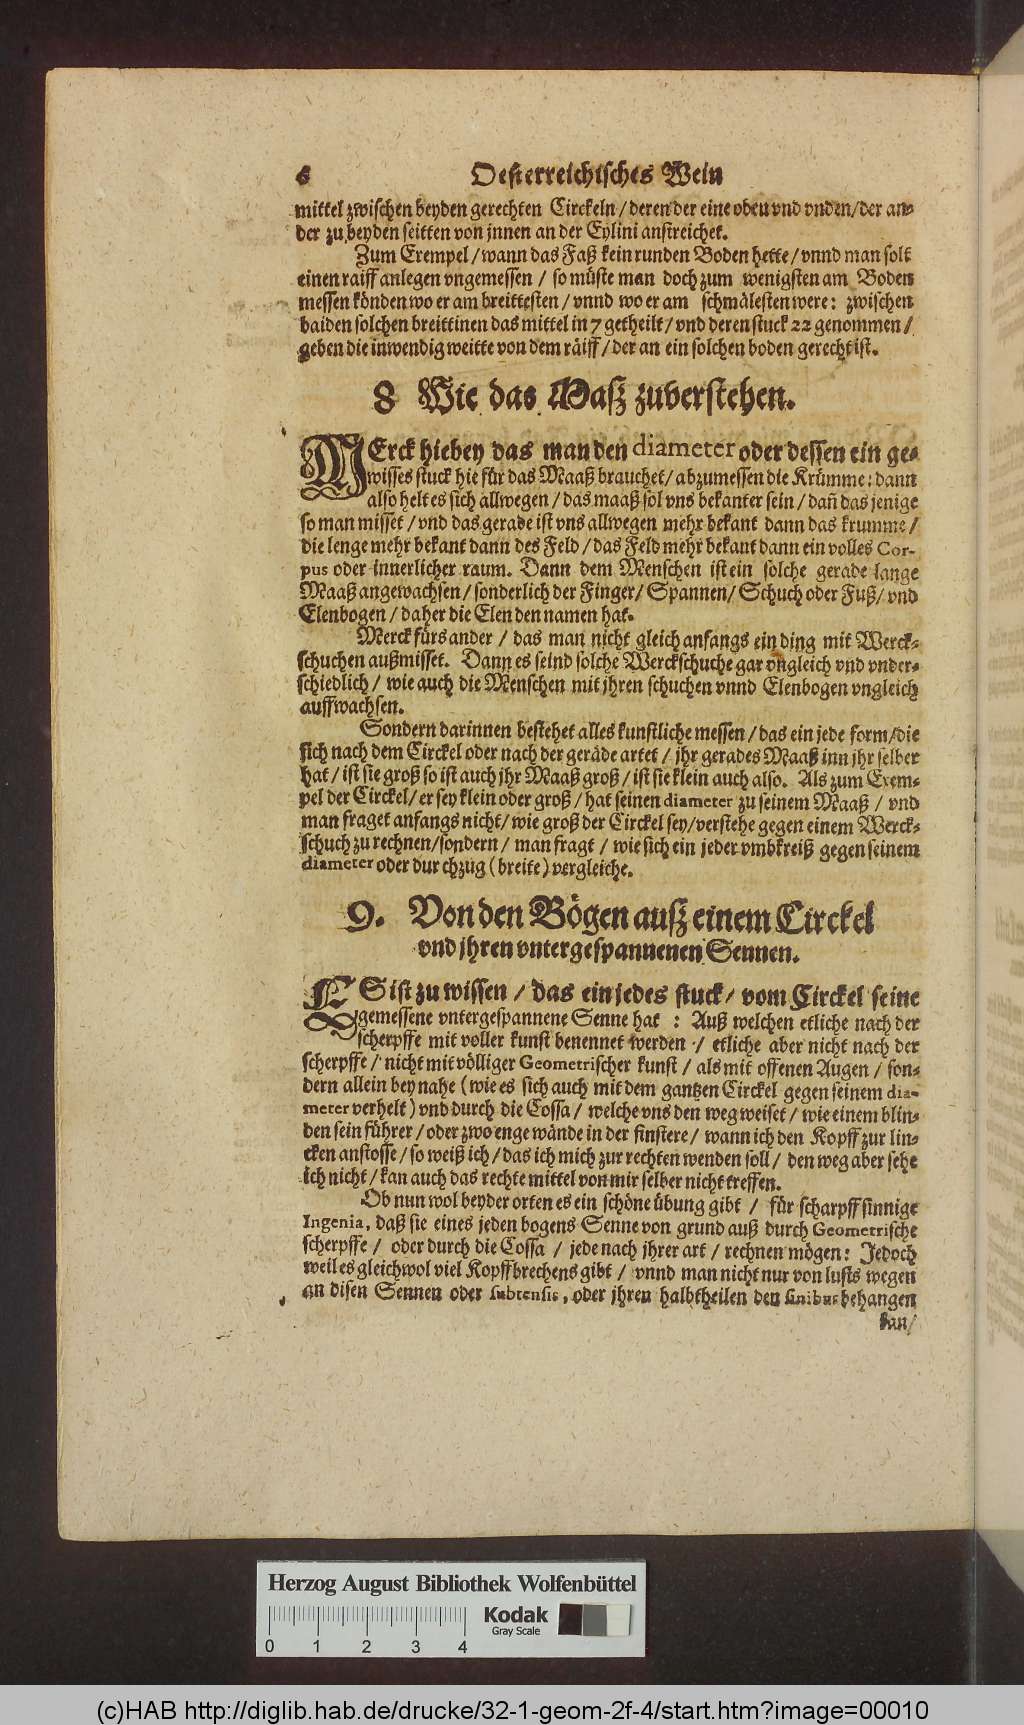 6 Oesterreichisches Wein
mittel zwischen beyden gerechten Circkeln / deren der eine oben vnd vnden / der an-
der zu beyden seitten von jnnen an der Eylini anstreichet.
Zum Exempel / wann das Faß kein runden Boden hette / vnnd man solt
einen raiff anlegen vngemessen / so müste man doch zum wenigsten am Boden
messen könden wo er am breittesten / vnnd wo er am schmälesten were: zwischen
baiden solchen breittinen das mittel in 7 getheilt / vnd deren stuck 22 genommen /
geben die inwendig weitte von dem räiff / der an ein solchen boden gerecht ist.
8 Wie das Maß zuverstehen.
MErck hiebey das man den diameter oder dessen ein ge-
wisses stuck hie für das Maaß brauchet / abzumessen die Krümme: dann
also helt es sich allwegen / das maaß sol vns bekanter sein / dañ das jenige
so man misset / vnd das gerade ist vns allwegen mehr bekant dann das krumme /
die lenge mehr bekant dann des Feld / das Feld mehr bekant dann ein volles Cor-
pus oder innerlicher raum. Dann dem Menschen ist ein solche gerade lange
Maaß angewachsen / sonderlich der Finger / Spannen / Schuch oder Fuß / vnd
Elenbogen / daher die Elen den namen hat.
Merck fürs ander / das man nicht gleich anfangs ein ding mit Werck-
schuchen außmisset. Dann es seind solche Werckschuche gar vngleich vnd vnder-
schiedlich / wie auch die Menschen mit jhren schuchen vnnd Elenbogen vngleich
auffwachsen.
Sondern darinnen bestehet alles kunstliche messen / das ein jede form / die
sich nach dem Circkel oder nach der geräde artet / jhr gerades Maaß inn jhr selber
hat / ist sie groß so ist auch jhr Maaß groß / ist sie klein auch also. Als zum Exem-
pel der Circkel / er sey klein oder groß / hat seinen diameter zu seinem Maaß / vnd
man fraget anfangs nicht / wie groß der Circkel sey / verstehe gegen einem Werck-
schuch zu rechnen / sondern / man fragt / wie sich ein jeder vmbkreiß gegen seinem
diameter oder durchzug (breite) vergleiche.
9. Von den Bögen auß einem Circkel
vnd jhren vntergespannenen Sennen.
ES ist zu wissen / das ein jedes stuck / vom Circkel seine
gemessene vntergespannene Senne hat : Auß welchen etliche nach der
scherpffe mit voller kunst benennet werden / etliche aber nicht nach der
scherpffe / nicht mit völliger Geometrischer kunst / als mit offenen Augen / son-
dern allein bey nahe (wie es sich auch mit dem gantzen Circkel gegen seinem dia-
meter verhelt) vnd durch die Cossa / welche vns den weg weiset / wie einem blin-
den sein führer / oder zwo enge wände in der finstere / wann ich den Kopff zur lin-
cken anstosse / so weiß ich / das ich mich zur rechten wenden soll / den weg aber sehe
ich nicht / kan auch das rechte mittel von mir selber nicht treffen.
Ob nun wol beyder orten es ein schöne übung gibt / für scharpffsinnige
Ingenia, daß sie eines jeden bogens Senne von grund auß durch Geometrische
scherpffe / oder durch die Cossa / jede nach jhrer art / rechnen mögen: Jedoch
weil es gleichwol viel Kopffbrechens gibt / vnnd man nicht nur von lusts wegen
an disen Sennen oder subtensis, oder jhren halbtheilen den sinibus behangen
kan /
Herzog August Bibliothek Wolfenbüttel
Kodak
Gray Scale
0 1 2 3 4
(c)HAB http://diglib.hab.de/drucke/32-1-geom-2f-4/start.htm?image=00010